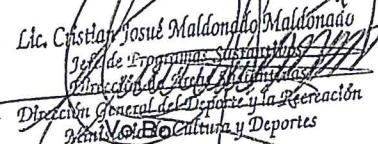 Lic. Cristian Josué Maldonado Maldonado
Jefe de Programas Sustantivos
Dirección de
Dirección General del Deporte y la Recreación
Ministerio de Cultura y Deportes
Vo.Bo